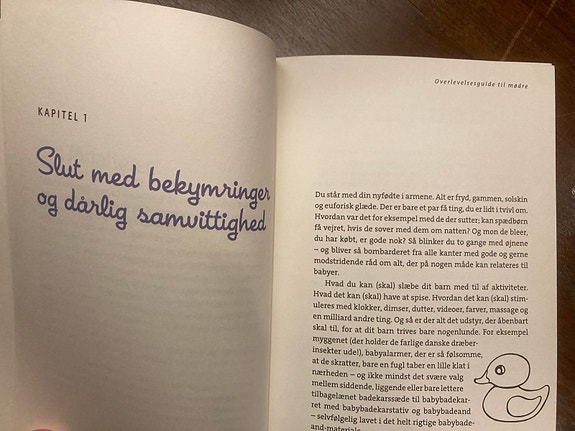 KAPITEL 1
Slut med bekymringer
og dårlig samvittighed
Overlevelsesguide til mødre
Du står med din nyfødte i armene. Alt er fryd, gammen, solskin
og euforisk glæde. Der er bare et par få ting, du er lidt i tvivl om.
Hvordan var det for eksempel med de der sutter; kan spædbørn
få vejret, hvis de sover med dem om natten? Og mon de bleer,
du har købt, er gode nok? Så blinker du to gange med øjnene
– og bliver så bombarderet fra alle kanter med gode og gerne
modstridende råd om alt, der på nogen måde kan relateres til
babyer.
Hvad du kan (skal) slæbe dit barn med til af aktiviteter.
Hvad det kan (skal) have at spise. Hvordan det kan (skal) stim-
uleres med klokker, dimser, dutter, videoer, farver, massage og
en milliard andre ting. Og så er der alt det udstyr, der åbenbart
skal til, for at dit barn trives bare nogenlunde. For eksempel
myggenet (der holder de farlige danske dræber-
insekter ude!), babyalarmer, der er så følsomme,
at de skratter, bare en fugl taber en lille klat i
nærheden – og ikke mindst det svære valg
mellem siddende, liggende eller bare lettere
tilbagelænet badekarssæde til babybadekar-
ret med babybadekarstativ og babybadeand
– selvfølgelig lavet i det helt rigtige babybade-
and-materiale